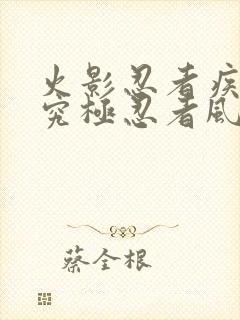 火影忍者疾
究極忍者風
蔡全根